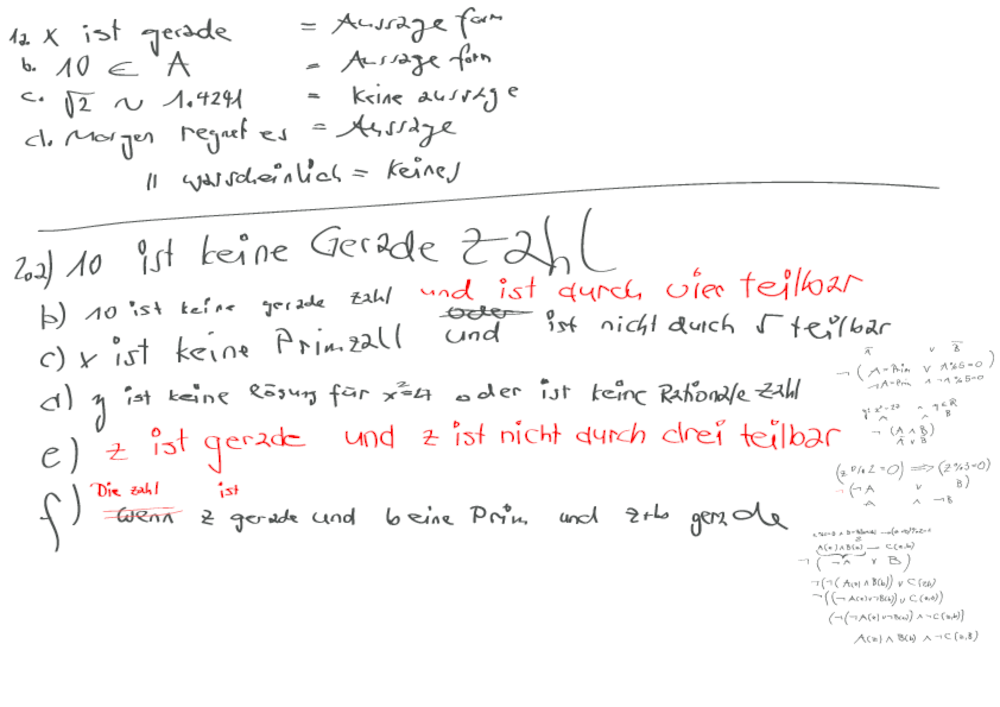 1a. x ist gerade = Aussage form
b. 10 ∈ A = Aussage form
c. √2 ~ 1.4241 = Keine aussage
d. Morgen regnet es = Aussage
" warscheinlich = Keines
2.a) 10 ist keine Gerade Zahl
b) 10 ist keine gerade zahl und ist durch vier teilbar
c) x ist keine Primzall oder und ist nicht durch 5 teilbar
d) y ist keine lösung für x²=4 oder ist keine Rationale zahl
e) z ist gerade und z ist nicht durch drei teilbar
Die zahl ist
f) wenn z gerade und b eine Prim und gerade
Ā ∨ B̄
¬(A-Prim ∨ A%5=0)
¬A-Prim ∧ ¬A%5=0
∧ B
¬(A ∧ B)
Ā ∨ B̄
(z%2=0) ⟹ (z%3=0)
¬(¬A ∨ B)
A ∧ ¬B
A(a)∧B(b) → C(a,b)
¬(¬A ∨ B)
¬(¬(A(a)∧B(b)) ∨ C(a,b))
¬((¬A(a)∨¬B(b)) ∨ C(a,b))
(¬(¬A(a)∨¬B(b)) ∧ ¬C(a,b))
A(a) ∧ B(b) ∧ ¬C(a,b)